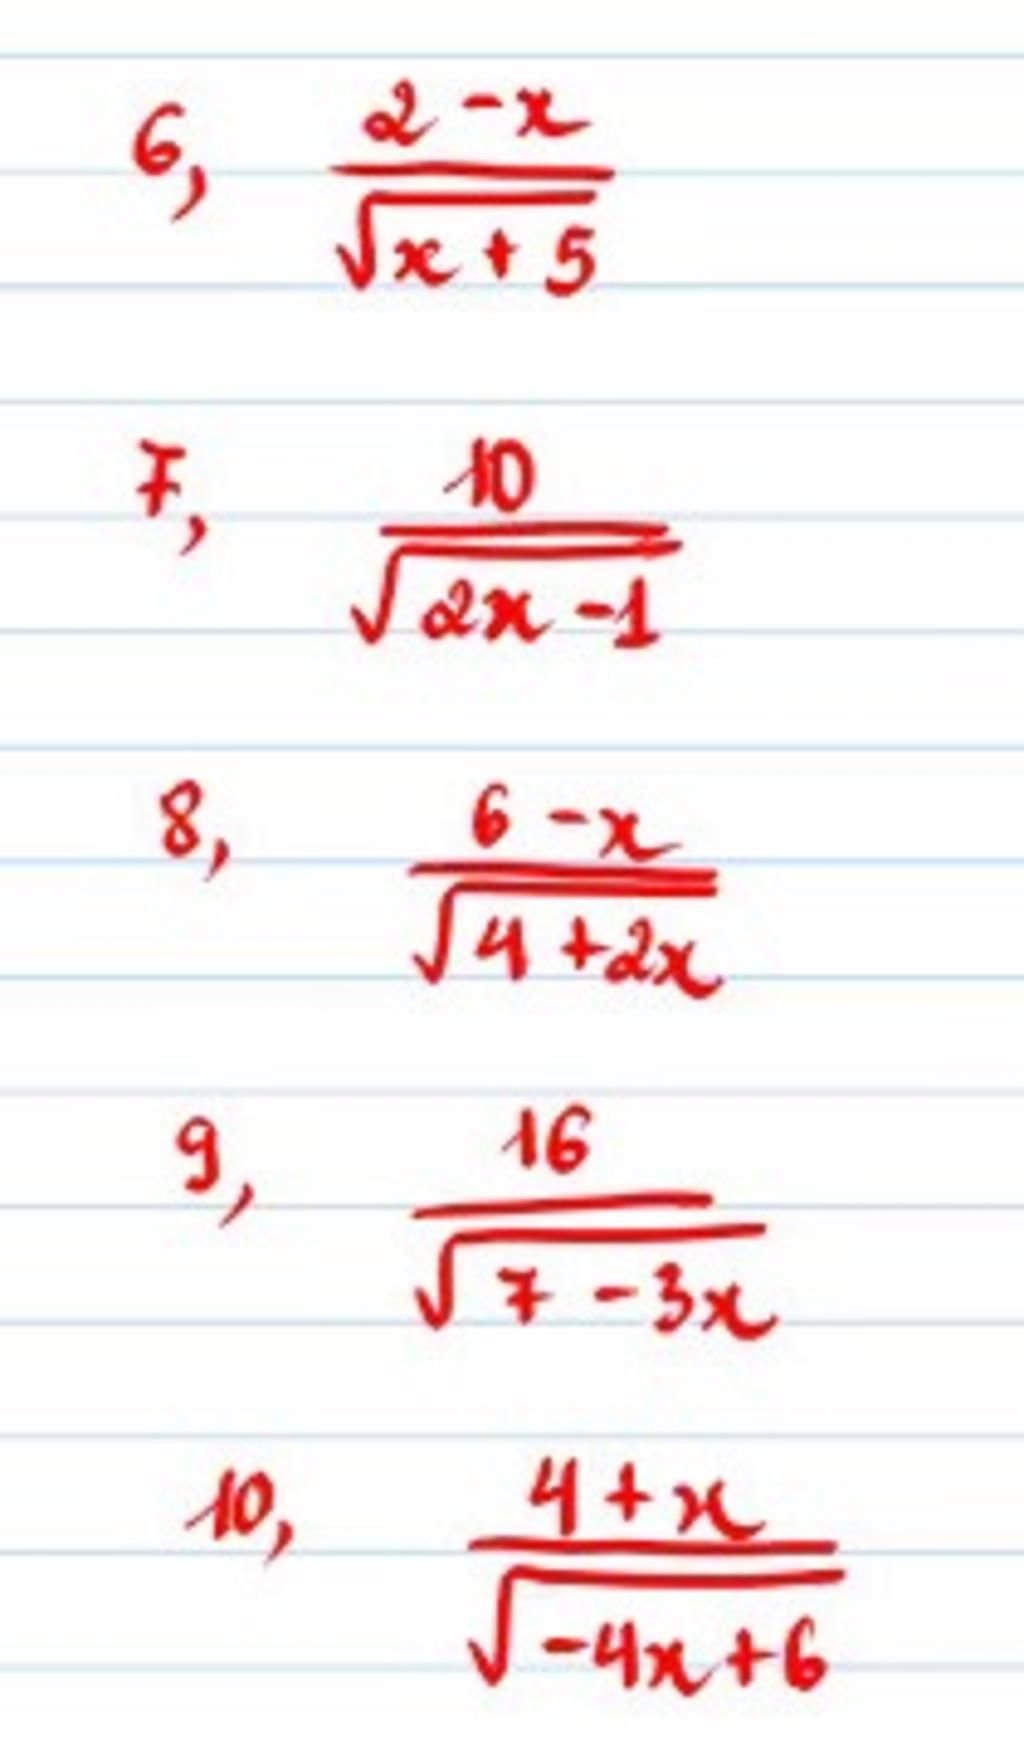 6, \frac{2 - x}{\sqrt{x + 5}}
7, \frac{10}{\sqrt{2x - 1}}
8, \frac{6 - x}{\sqrt{4 + 2x}}
9, \frac{16}{\sqrt{7 - 3x}}
10, \frac{4 + x}{\sqrt{-4x + 6}}